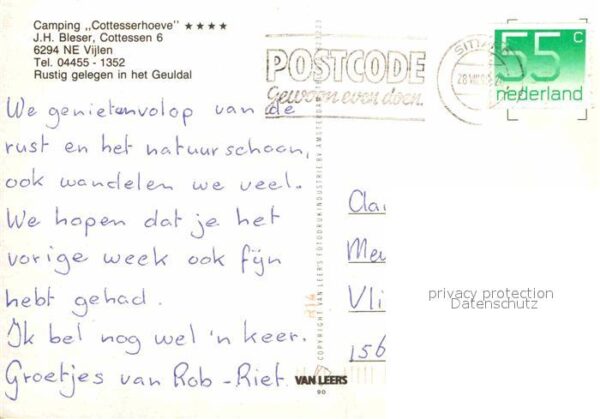 Camping „Cottesserhoeve” ★★★★
J.H. Bleser, Cottessen 6
6294 NE Vijlen
Tel. 04455 - 1352
Rustig gelegen in het Geuldal
POSTCODE
Gewoon even doen.
SITTARD
55 c
nederland
We genieten volop van de
rust en het natuurschoon,
ook wandelen we veel.
We hopen dat je het
vorige week ook fijn
hebt gehad.
Ik bel nog wel 'n keer.
Groetjes van Rob - Riet.
COPYRIGHT VAN LEER'S FOTODRUKINDUSTRIE BV AMSTERDAM
VAN LEERS
90
Vli
156
privacy protection
Datenschutz